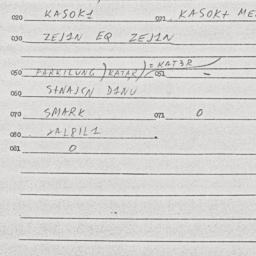 020 KASOK1 021 KASOK+ ME
030 ZEJ1N EQ ZEJ1N
050 PARKILUNG ) KATAR ) = KAT3R 051 -
060 S+NAJCN D1NU
070 SMARK 071 0
080
081 0